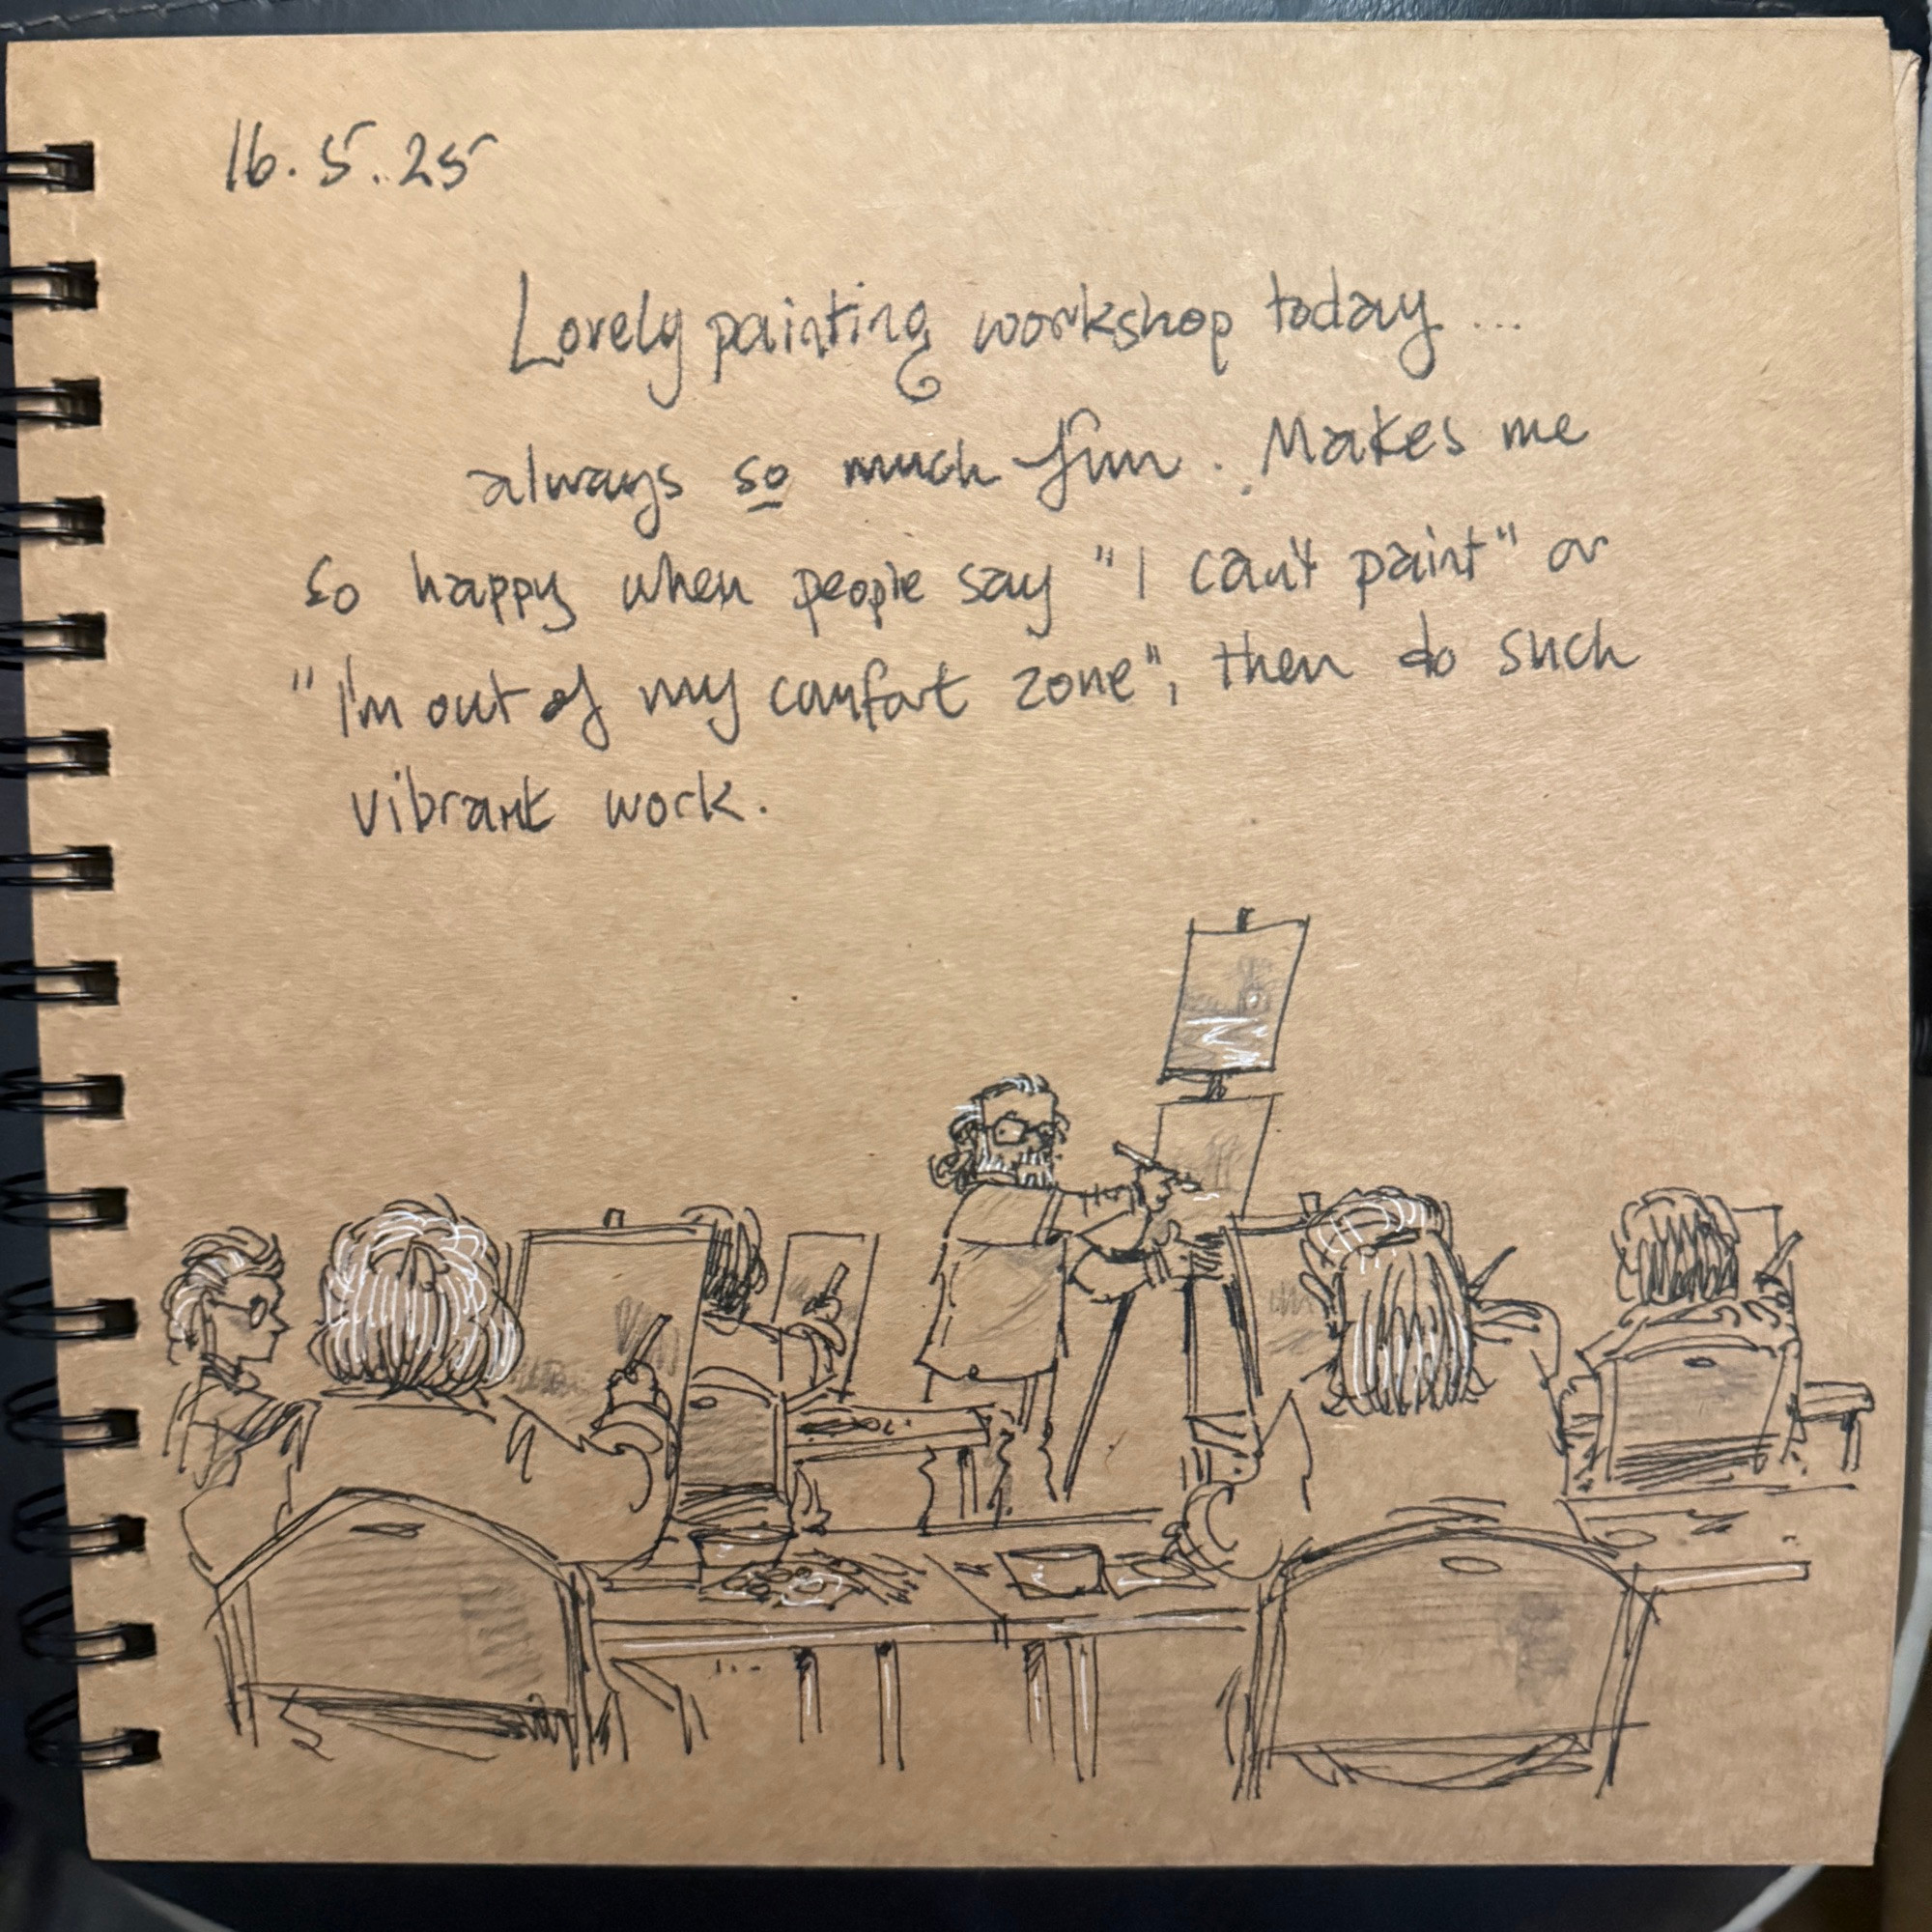 16.5.25
Lovely painting workshop today...
always so much fun. Makes me
so happy when people say "I can't paint" or
"I'm out of my comfort zone", then do such
vibrant work.